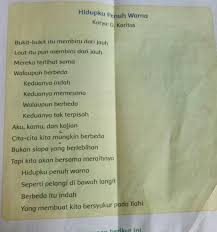 Hidupku Penuh Warna
Karya: G. Karina
Bukit-bukit itu membiru dari jauh
Laut itu pun membiru dari jauh
Mereka terlihat sama
Walaupun berbeda
Keduanya indah
Keduanya memesona
Walaupun berbeda
Keduanya tak terpisah
Aku, kamu, dan kalian
Cita-cita kita mungkin berbeda
Bukan siapa yang berlebihan
Tapi kita akan bersama meraihnya
Hidupku penuh warna
Seperti pelangi di bawah langit
Berbeda itu indah
Yang membuat kita bersyukur pada Ilahi
berikut ini